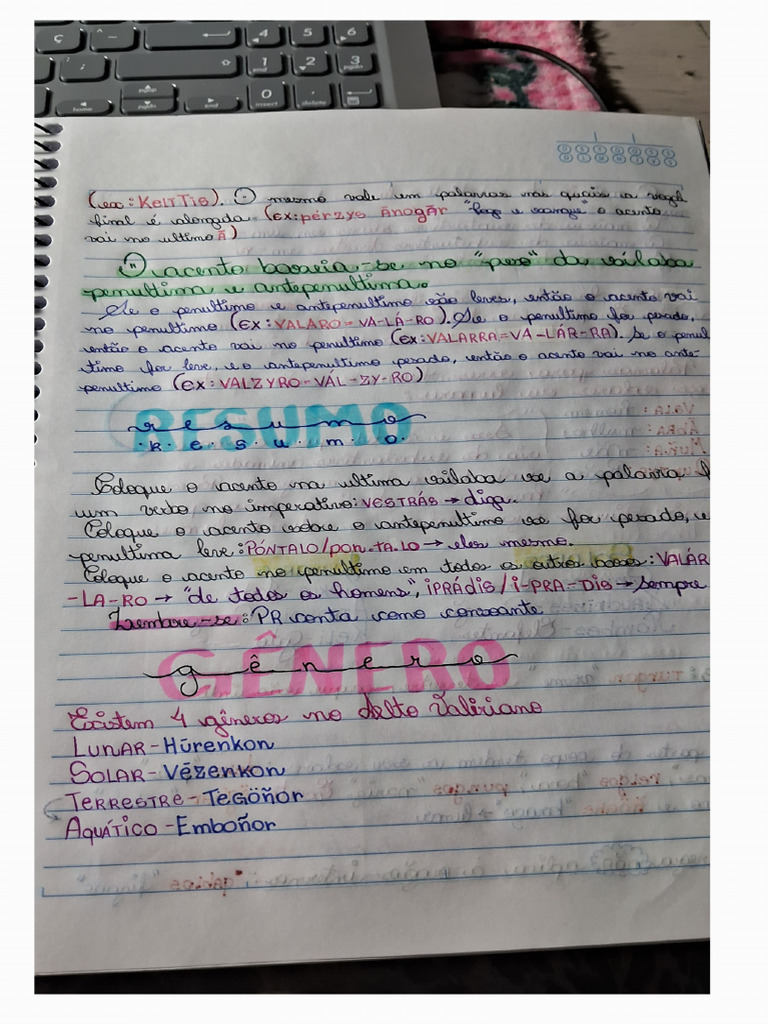 (ex: KELITIS). O mesmo vale em palavras nas quais a vogal
final é alongada (EX: pērzys Ānogār "fogo e sangue" o acento
vai no ultimo Ā)
O acento baseia-se no "peso" da sílaba
penultima e antepenultima.
Se o penultimo e antepenultimo são leves, então o acento vai
no penultimo (EX: VALARO = VA-LÁ-RO). Se o penultimo for pesado,
então o acento vai no penultimo (EX: VALARRA = VA-LÁR-RA). Se o penul
timo for leve, e o antepenultimo pesado, então o acento vai no ante-
penultimo (EX: VALZYRO - VÁL-ZY-RO)
RESUMO
resumo
R.E.S.U.M.O.
Coloque o acento na ultima sílaba se a palavra f
um verbo no imperativo: VESTRÁS → diga.
Coloque o acento sobre o antepenultimo se for pesado, e
penultima leve: PÓNTALO/pon.TA.LO → eles mesmo.
Coloque o acento no penultimo em todos os outros casos: VALÁR
-LA-RO → "de todos os homens", iPRÁDIS / i-PRA-DIS → sempre
Lembre-se: PR conta como consoante
GÊNERO
gênero
Existem 4 gêneros no alto Valiriano
LUNAR - Hūrenkon
SOLAR - Vēzenkon
TERRESTRE - TEGOÑOR
AQUÁTICO - Emboñor